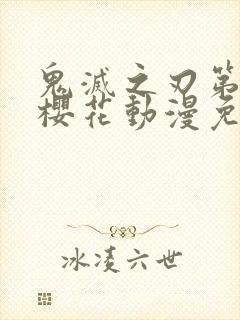 鬼滅之刃第
櫻花動漫免
冰凌六世